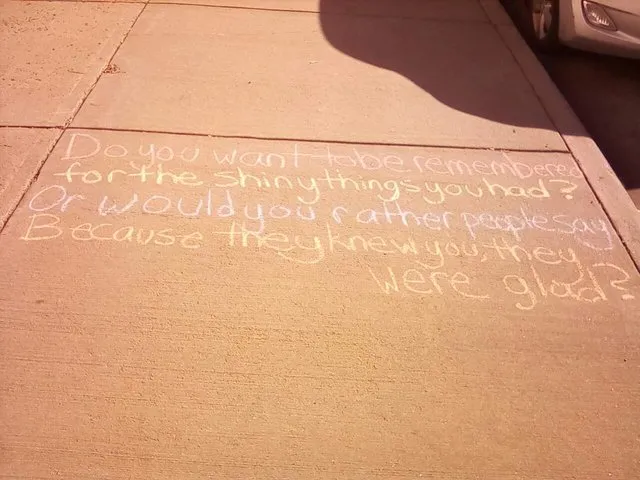 Do you want to be remembered
for the shiny things you had?
Or would you rather people say
Because they knew you, they
were glad?